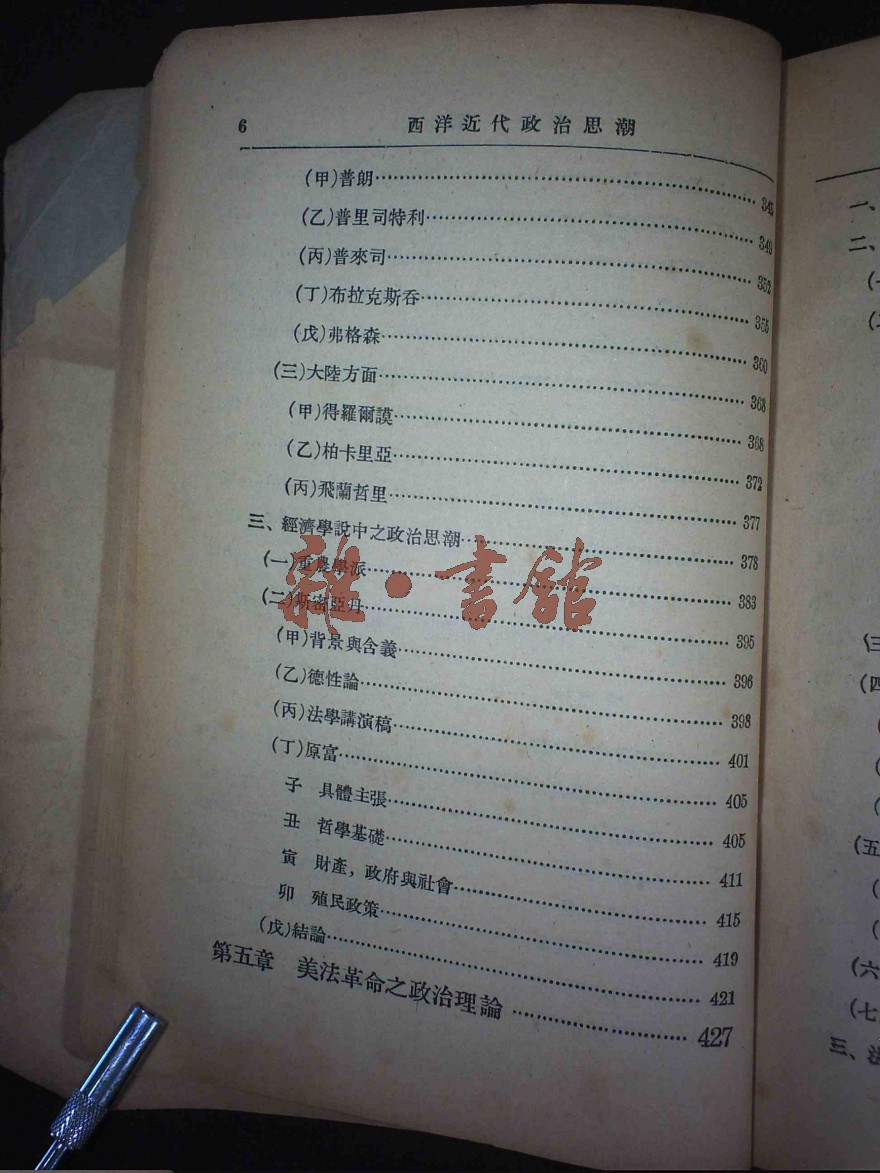 6 西洋近代政治思潮
(甲)普朗 345
(乙)普里司特利 349
(丙)普來司 352
(丁)布拉克斯吞 355
(戊)弗格森 360
(三)大陸方面 368
(甲)得羅爾謨 368
(乙)柏卡里亞 372
(丙)飛蘭哲里 377
三、經濟學說中之政治思潮 378
(一)重農學派 383
(二)斯密亞丹 395
(甲)背景與含義 396
(乙)德性論 398
(丙)法學講演稿 401
(丁)原富 405
子 具體主張 405
丑 哲學基礎 411
寅 財產,政府與社會 415
卯 殖民政策 419
(戊)結論 421
第五章 美法革命之政治理論 427
雜·書館
一、
二、
(三
(四
(五
(六
(七
三、法